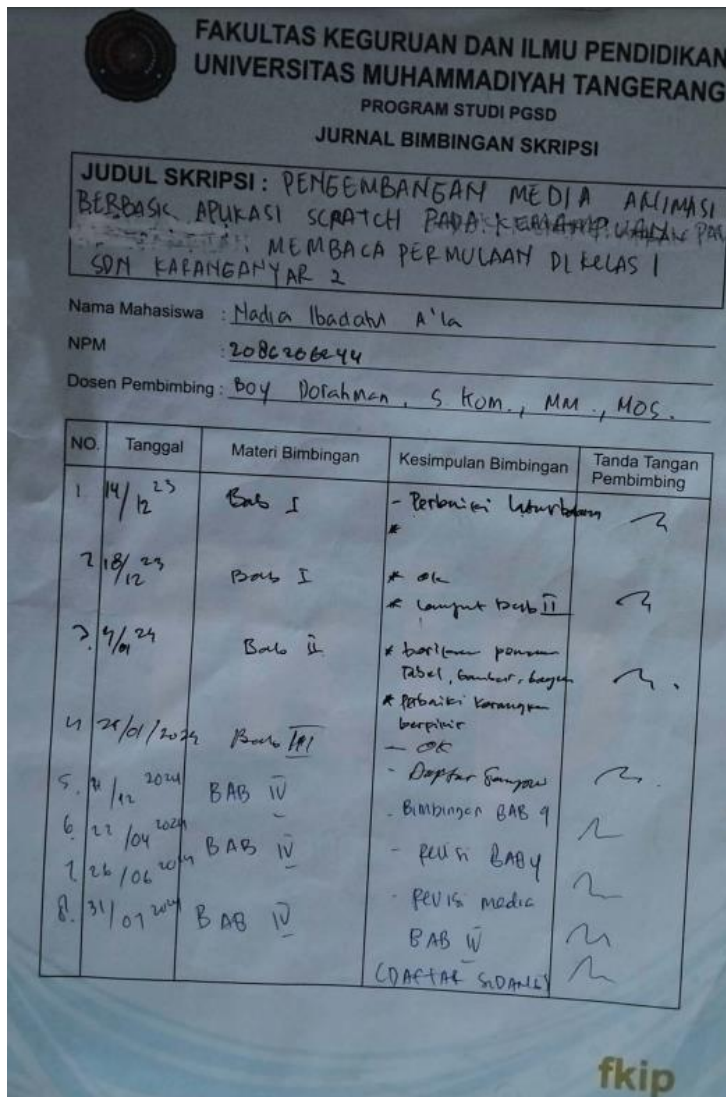 FAKULTAS KEGURUAN DAN ILMU PENDIDIKAN
UNIVERSITAS MUHAMMADIYAH TANGERANG
PROGRAM STUDI PGSD
JURNAL BIMBINGAN SKRIPSI
JUDUL SKRIPSI : PENGEMBANGAN MEDIA ANIMASI
BERBASIS APLIKASI SCRATCH PADA KEMAMPUAN
MEMBACA PERMULAAN DI KELAS 1
SDN KARANGANYAR 2
Nama Mahasiswa : Nadia Ibadatul A'la
NPM :
Dosen Pembimbing : Boy Dorahman, S Kom., MM., MOS.
NO. Tanggal Materi Bimbingan Kesimpulan Bimbingan Tanda Tangan Pembimbing
1 14/12 23 Bab I - Perbaiki
*
2 18/12 23 Bab I * ok
* Lanjut Bab II
3. 24 Bab II *
Tabel, Gambar, bagan
* Perbaiki kerangka
berpikir
4 /01/2024 Bab III - OK
5. /12 2024 BAB IV - Daftar
6. 22/04 2024 BAB IV - Bimbingan BAB 4
7 26/06 2024 - Revisi BAB 4
8. 31/07 2024 BAB IV - Revisi media
BAB IV
(DAFTAR SIDANG)
fkip